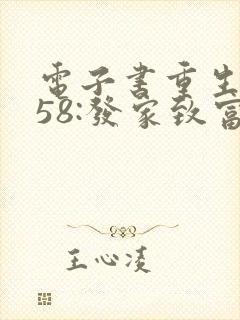 電子書重生
58:發家致富
王心凌